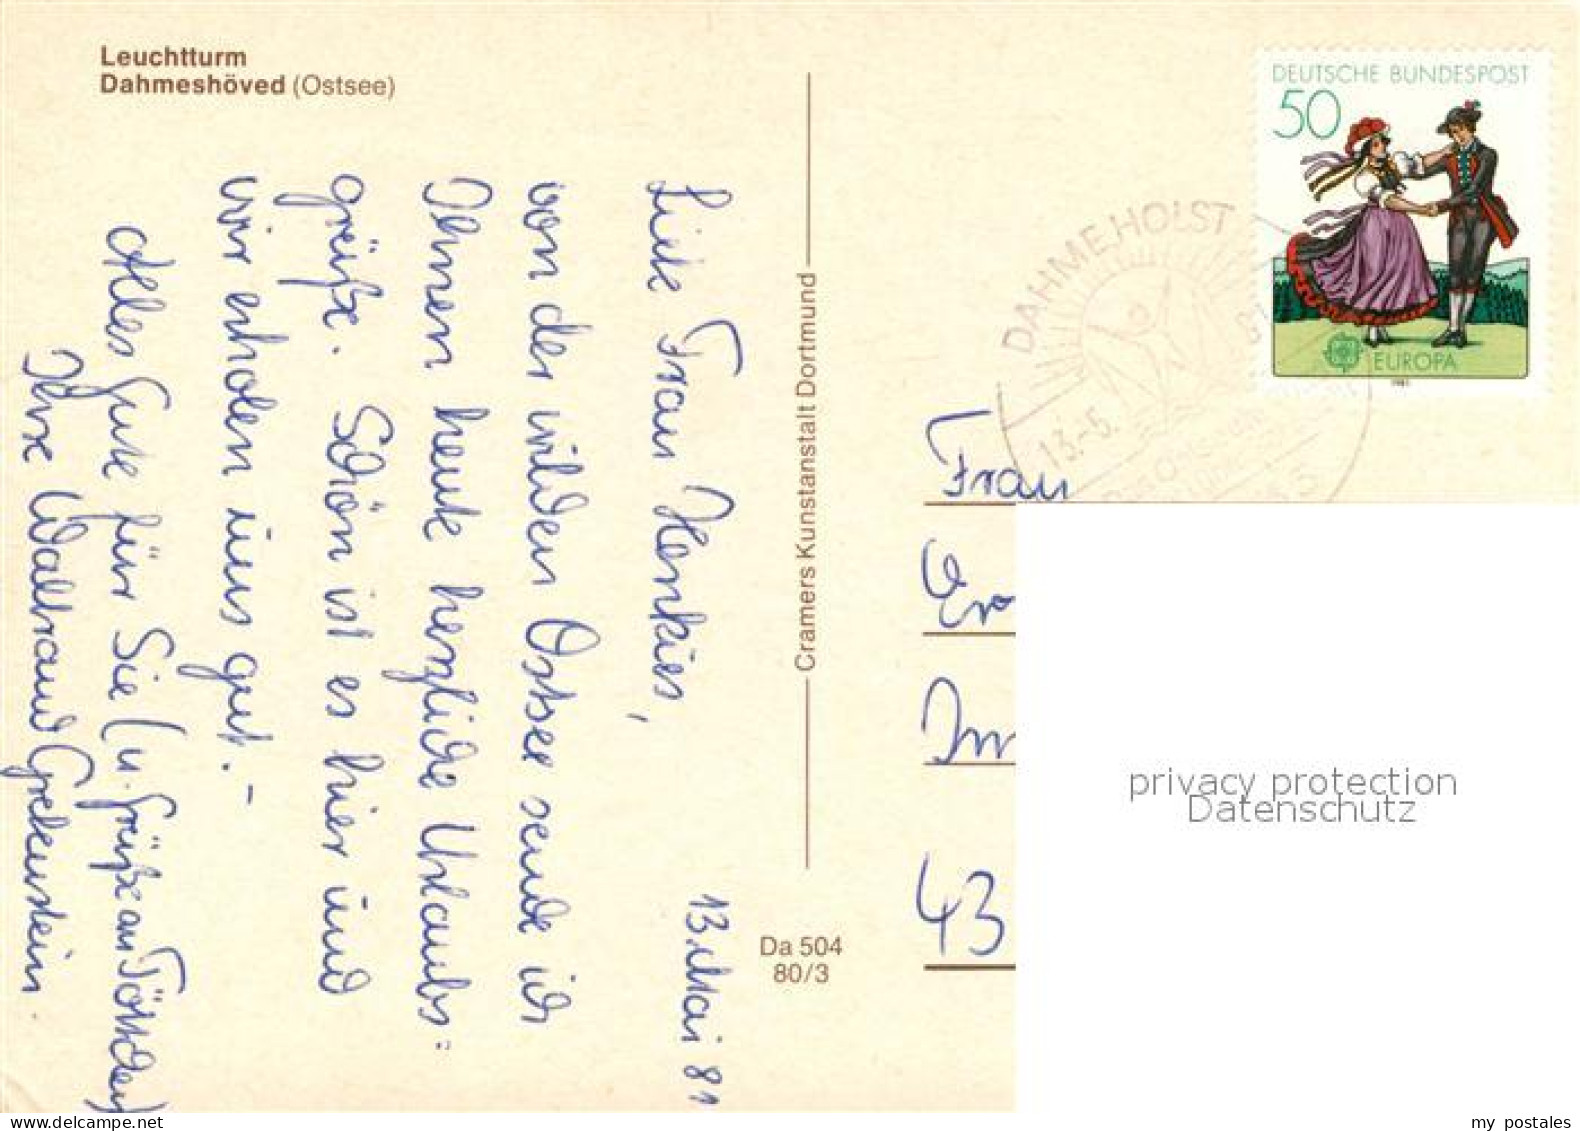 Leuchtturm
Dahmeshöved (Ostsee)
13. Mai 81
Liebe Frau Henkies,
von der wilden Ostsee sende ich
Ihnen heute herzliche Urlaubs=
grüße. Schön ist es hier und
wir erholen uns gut. –
Alles Gute für Sie (u. Grüße an
Ihre Waltraud Grebenstein.
Cramers Kunstanstalt Dortmund
Da 504
80/3
DEUTSCHE BUNDESPOST
50
EUROPA
1981
DAHME, HOLST
13.-5.
Frau
43
privacy protection
Datenschutz
my postales
www.delcampe.net